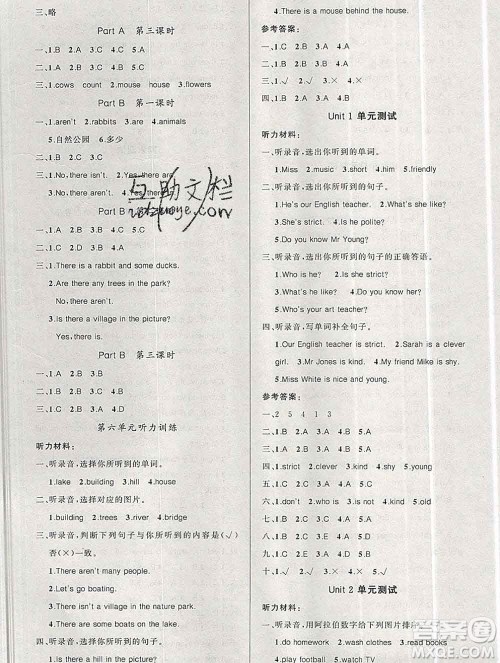 三、略
Part A 第三课时
一、1.B 2.A 3.B 4.C 5.A
二、1.B 2.C 3.A 4.A 5.B
三、1.cows count 2.mouse house 3.flowers
Part B 第一课时
一、1.aren't 2.rabbits 3.are 4.animals
5.自然公园 6.多少
二、1.C 2.B 3.A 4.A
三、1.No, there isn't. 2.Yes, there are.
3.No, there aren't. 4.Yes, there is.
Part B
一、1.B 2.A 3.B 4.C 5.A
二、1.B 2.A 3.C 4.B
三、1.There is a rabbit and some ducks.
2.Are there any trees in the park?
No, there aren't.
3.Is there a village in the picture?
Yes, there is.
Part B 第三课时
一、1.B 2.A 3.C 4.B 5.A
二、1.B 2.A 3.A 4.B
第六单元听力训练
听力材料:
一、听录音,选择你所听到的单词。
1.lake 2.building 3.hill 4.house
二、听录音,选择对应的图片。
1.building 2.trees 3.river 4.bridge
三、听录音,判断下列句子与你所听到的内容是(√)
否(×)一致。
1.There aren't many people.
2.Let's go boating.
3.Is there a village in the nature park?
4.There are some boats on the lake.
四、听录音,选择你所听到的句子。
1.Is there a hill in the picture?
4.There is a mouse behind the house.
参考答案:
一、1.C 2.A 3.B 4.A
二、1.B 2.A 3.B 4.A
三、1.√ 2.√ 3.× 4.×
四、1.B 2.A 3.B 4.B
Unit 1 单元测试
听力材料:
一、听录音,选出你所听到的单词。
1.Miss 2.music 3.smart 4.short 5.friendly
二、听录音,选出你所听到的句子。
1.He's our English teacher. 2.He's strict.
3.Do you know Mr Young? 4.Is he polite?
三、听录音,选出你所听到的句子的正确答语。
1.Who is he? 2.Is she strict?
3.What's he like? 4.Do you know her?
5.Who's your art teacher?
四、听录音,写单词补全句子。
1.Our English teacher is strict. 2.Sarah is a clever
girl. 3.Mr Jones is kind. 4.My friend Mike is shy.
5.Miss White is not helpful.
参考答案:
一、2 5 4 1 3
二、1.A 2.A 3.B 4.B
三、1.B 2.A 3.A 4.B 5.A
四、1.strict 2.clever 3.kind 4.shy 5.helpful
六、1.don't 2.who 3.is not 4.isn't 5.out of
七、1.B 2.A 3.B 4.A 5.B
八、1.C 2.A 3.B 4.C 5.B
十、1.B 2.D 3.A 4.C
十一、1.√ 2.× 3.√ 4.×
Unit 2 单元测试
听力材料:
一、听录音,用阿拉伯数字给下列图片排序。
1.do homework 2.wash clothes 3.read books
4.play football 5.watch TV
互助文栏
答案圈
MXQE.COM